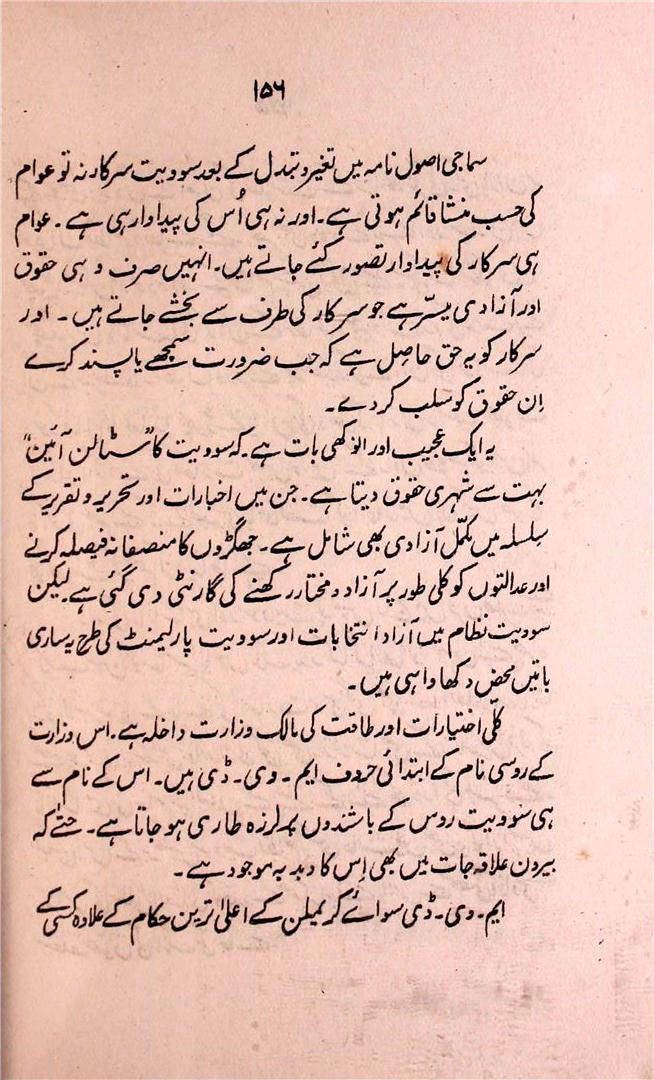 ۱۵۶
سماجی اصول نامہ میں تغیر و تبدل کے بعد سوویت سرکار نہ تو عوام
کی حسب منشا قائم ہوتی ہے۔ اور نہ ہی اُس کی پیداوار ہی ہے۔ عوام
ہی سرکار کی پیداوار تصور کئے جاتے ہیں۔ انہیں صرف وہی حقوق
اور آزادی میسّر ہے جو سرکار کی طرف سے بخشے جاتے ہیں۔ اور
سرکار کو یہ حق حاصِل ہے کہ جب ضرورت سمجھے یا پسند کرے
اِن حقوق کو سلب کر دے۔
یہ ایک عجیب اور انوکھی بات ہے۔ کہ سوویت کا "سٹالن آئین"
بہت سے شہری حقوق دیتا ہے۔ جن میں اخبارات اور تحریر و تقریر کے
سِلسلہ میں مکمّل آزادی بھی شامل ہے۔ جھگڑوں کا منصفانہ فیصلہ کرنے
اور عدالتوں کو کلی طور پر آزاد و مختار رکھنے کی گارنٹی دی گئی ہے۔ لیکن
سوویت نظام میں آزاد انتخابات اور سوویت پارلیمنٹ کی طرح یہ ساری
باتیں محض دکھاوا ہی ہیں۔
کلّی اختیارات اور طاقت کی مالک وزارت داخلہ ہے۔ اس وزارت
کے روسی نام کے ابتدائی حروف ایم۔ وی۔ ڈی ہیں۔ اس کے نام سے
ہی سوویت روس کے باشندوں پر لرزہ طاری ہو جاتا ہے۔ حتےٰ کہ
بیرون علاقہ جات میں بھی اِس کا دبدبہ موجود ہے۔
ایم۔ وی۔ ڈی سوائے کریملن کے اعلیٰ ترین حکام کے علاوہ کسی کے